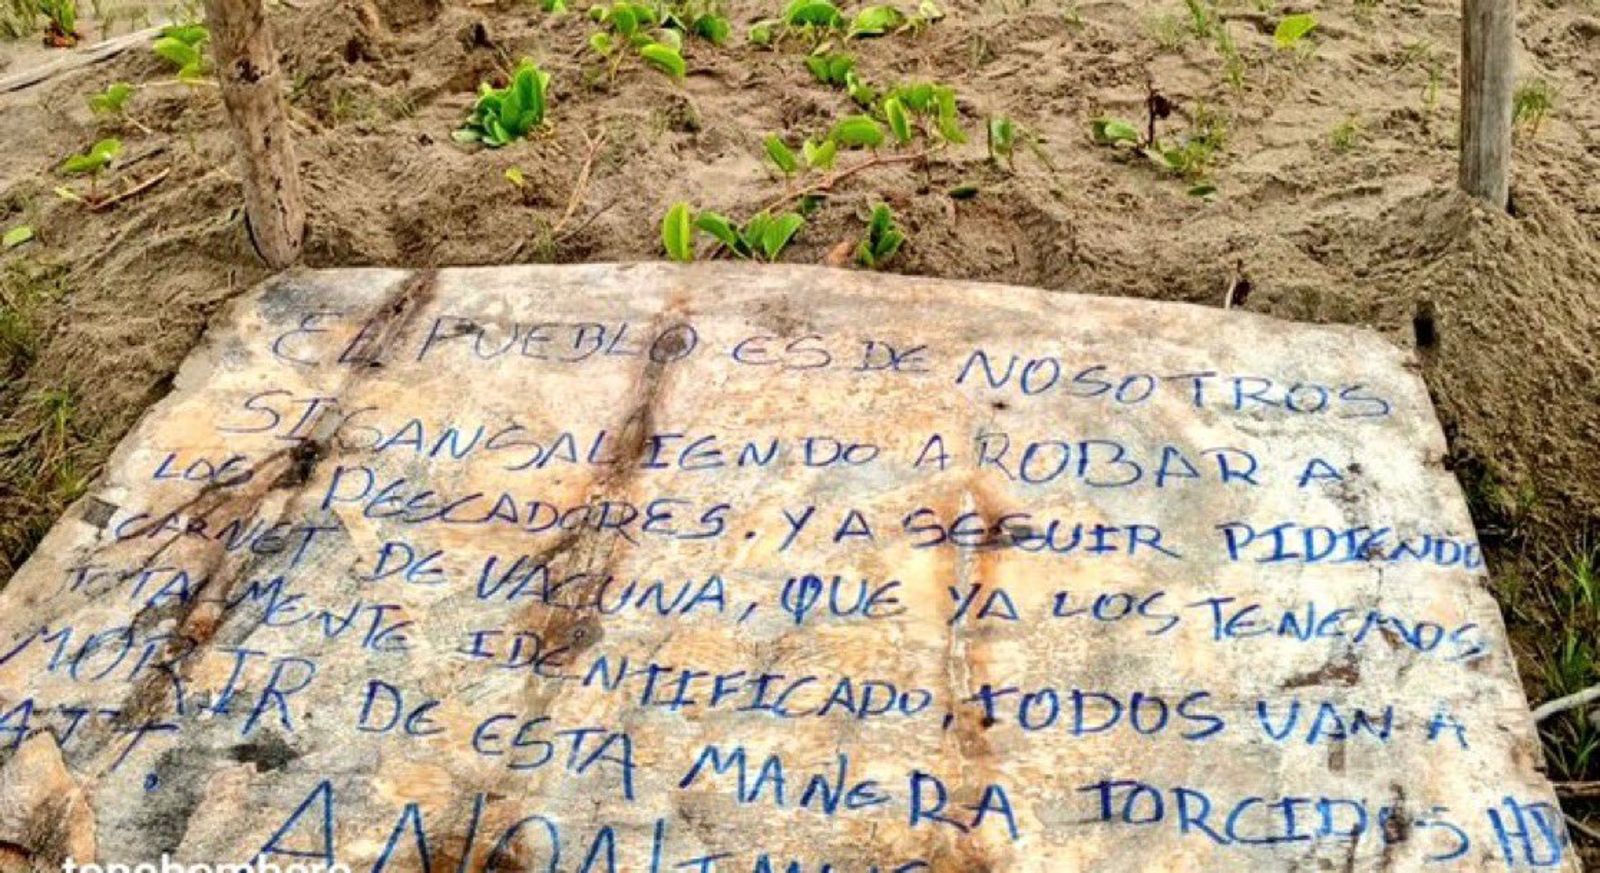 EL PUEBLO ES DE NOSOTROS
SIGAN SALIENDO A ROBAR A
LOS PESCADORES. Y A SEGUIR PIDIENDO
CARNET DE VACUNA, QUE YA LOS TENEMOS,
TOTALMENTE IDENTIFICADO, TODOS VAN A
MORIR DE ESTA MANERA TORCIDOS HJ
ATT.
ANONIMUS